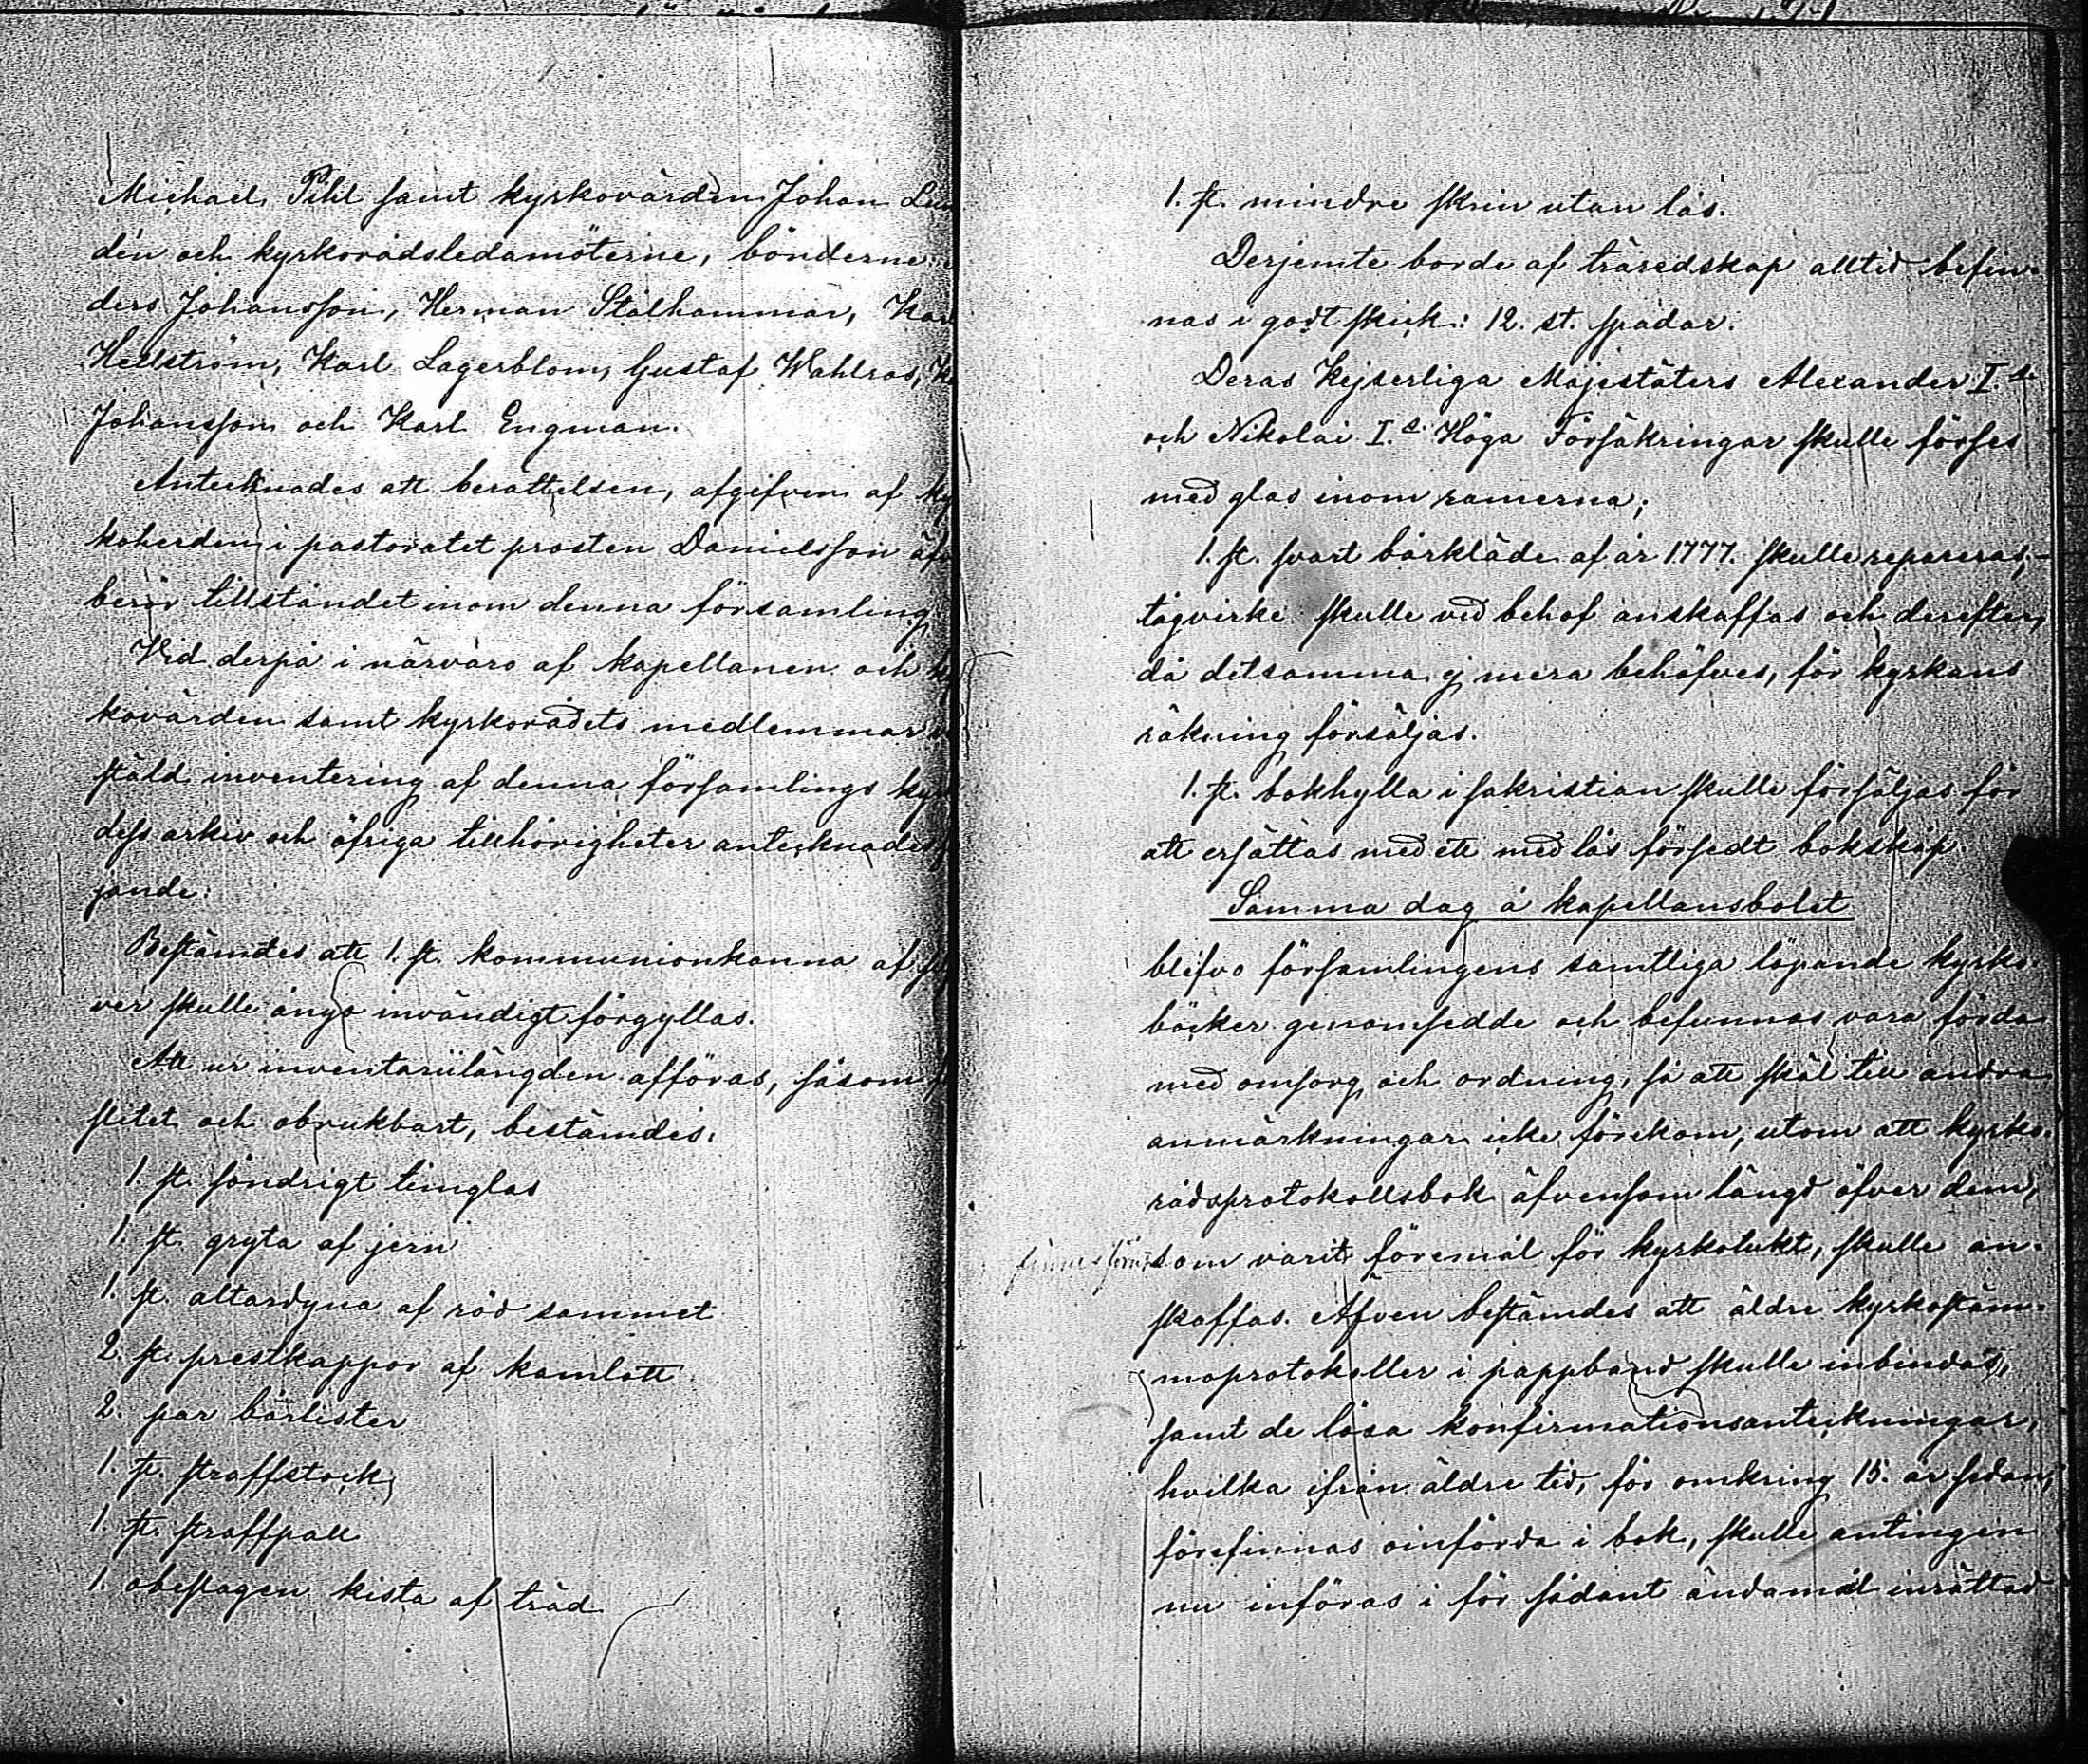 Michael Pihl samt kyrkovärden Johan Lun
dén och kyrkorådsledamöterne, bönderne
ders Johansson, Herman Stålhammar, Kar
Hellström, Karl Lagerblom, Gustaf Wahlroos, K
Johansson och Karl Engman.
Antecknades att berättelsen, afgifven af ky
koherden i pastoratet prosten Danielsson äf
berör tillståndet inom denna församling
Vid derpå i närvaro af kapellanen och k
kovärden samt kyrkorådets medlemmar
stäld inventering af denna församlings kyr
dess arkiv och öfriga tillhörigheter antecknades
jande:
Bestämdes att 1. st. kommunionkanna af
ver skulle ånyo invändigt förgyllas.
Att ur inventariilängden afföras, såsom
slitet och obrukbart, bestämdes:
1. st. söndrigt timglas
1. st. gryta af jern
1. st. altardyna af röd sammet
2. st. prestkappor af kamlott
2. par bårlister
1. st. straffstock
1. st. straffpall
1. obeslagen kista af träd
1. st. mindre skrin utan lås.
Derjemte borde af träredskap alltid befin-
nas i godt skick: 12. st. spadar.
Deras Kejserliga Majestäters Alexander I.s
och Nikolai I.s Höga Försäkringar skulle förses
med glas inom ramerna;
1. st. svart bårkläde af år 1777. skulle repareras; -
tågvirke skulle vid behof anskaffas och derefter,
då detsamma ej mera behöfves, för kyrkans
räkning försäljas.
1. st. bokhylla i sakristian skulle försäljas för
att ersättas med ett med lås försedt bokskåp.
Samma dag å kapellansbolet
blefvo församlingens samtliga löpande kyrko-
böcker genomsedde och befunnos vara förda
med omsorg och ordning, så att skäl till andra
anmärkningar icke förekom, utom att kyrko-
rådsprotokollsbok äfvensom längd öfver dem,
som varit föremål för kyrkotukt, skulle an-
skaffas. Afven bestämdes att äldre kyrkostäm-
moprotokoller i pappband skulle inbindas,
samt de lösa konfirmationsanteckningar,
hvilka ifrån äldre tid, för omkring 15. år sedan,
förefinnas oinförda i bok, skulle antingen
nu införas i för sådant ändamål inrättad